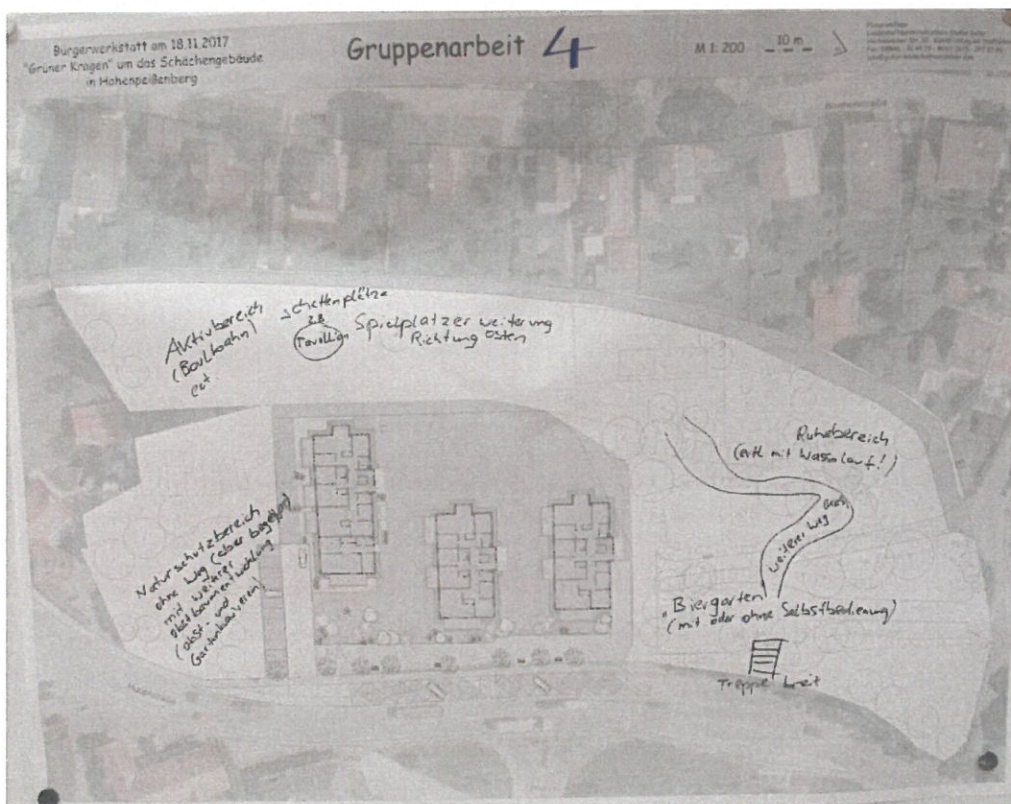 Bürgerwerkstatt am 18.11.2017
"Grüner Kragen" um das Schächengebäude
in Hohenpeißenberg
Gruppenarbeit 4
M 1: 200
10 m
Aktivbereich
(Boulbahn)
ect.
Schattenplätze
z.B
Pavillion
Spielplatzerweiterung
Richtung Osten
Ruhebereich
(evtl mit Wasserlauf!)
weiterer Weg
Naturschutzbereich
ohne Weg (aber begehbar)
mit weiterer
Obstbaumentwicklung
(Obst- und
Gartenbauverein)
Biergarten
(mit oder ohne Selbstbedienung)
Treppe breit